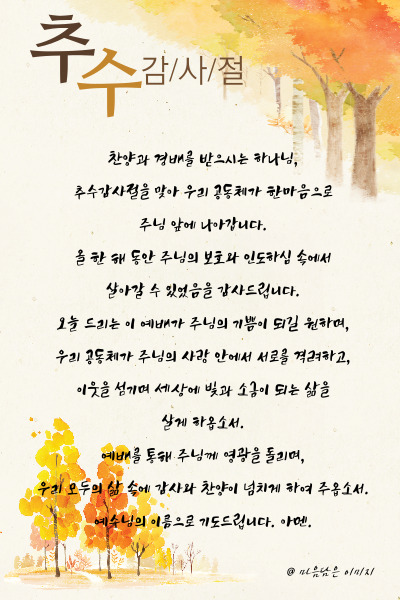 추수감/사/절
찬양과 경배를 받으시는 하나님,
추수감사절을 맞아 우리 공동체가 한마음으로
주님 앞에 나아갑니다.
올 한 해 동안 주님의 보호와 인도하심 속에서
살아갈 수 있었음을 감사드립니다.
오늘 드리는 이 예배가 주님의 기쁨이 되길 원하며,
우리 공동체가 주님의 사랑 안에서 서로를 격려하고,
이웃을 섬기며 세상에 빛과 소금이 되는 삶을
살게 하옵소서.
예배를 통해 주님께 영광을 돌리며,
우리 모두의 삶 속에 감사와 찬양이 넘치게 하여 주옵소서.
예수님의 이름으로 기도드립니다. 아멘.
@ 마음담은 이미지